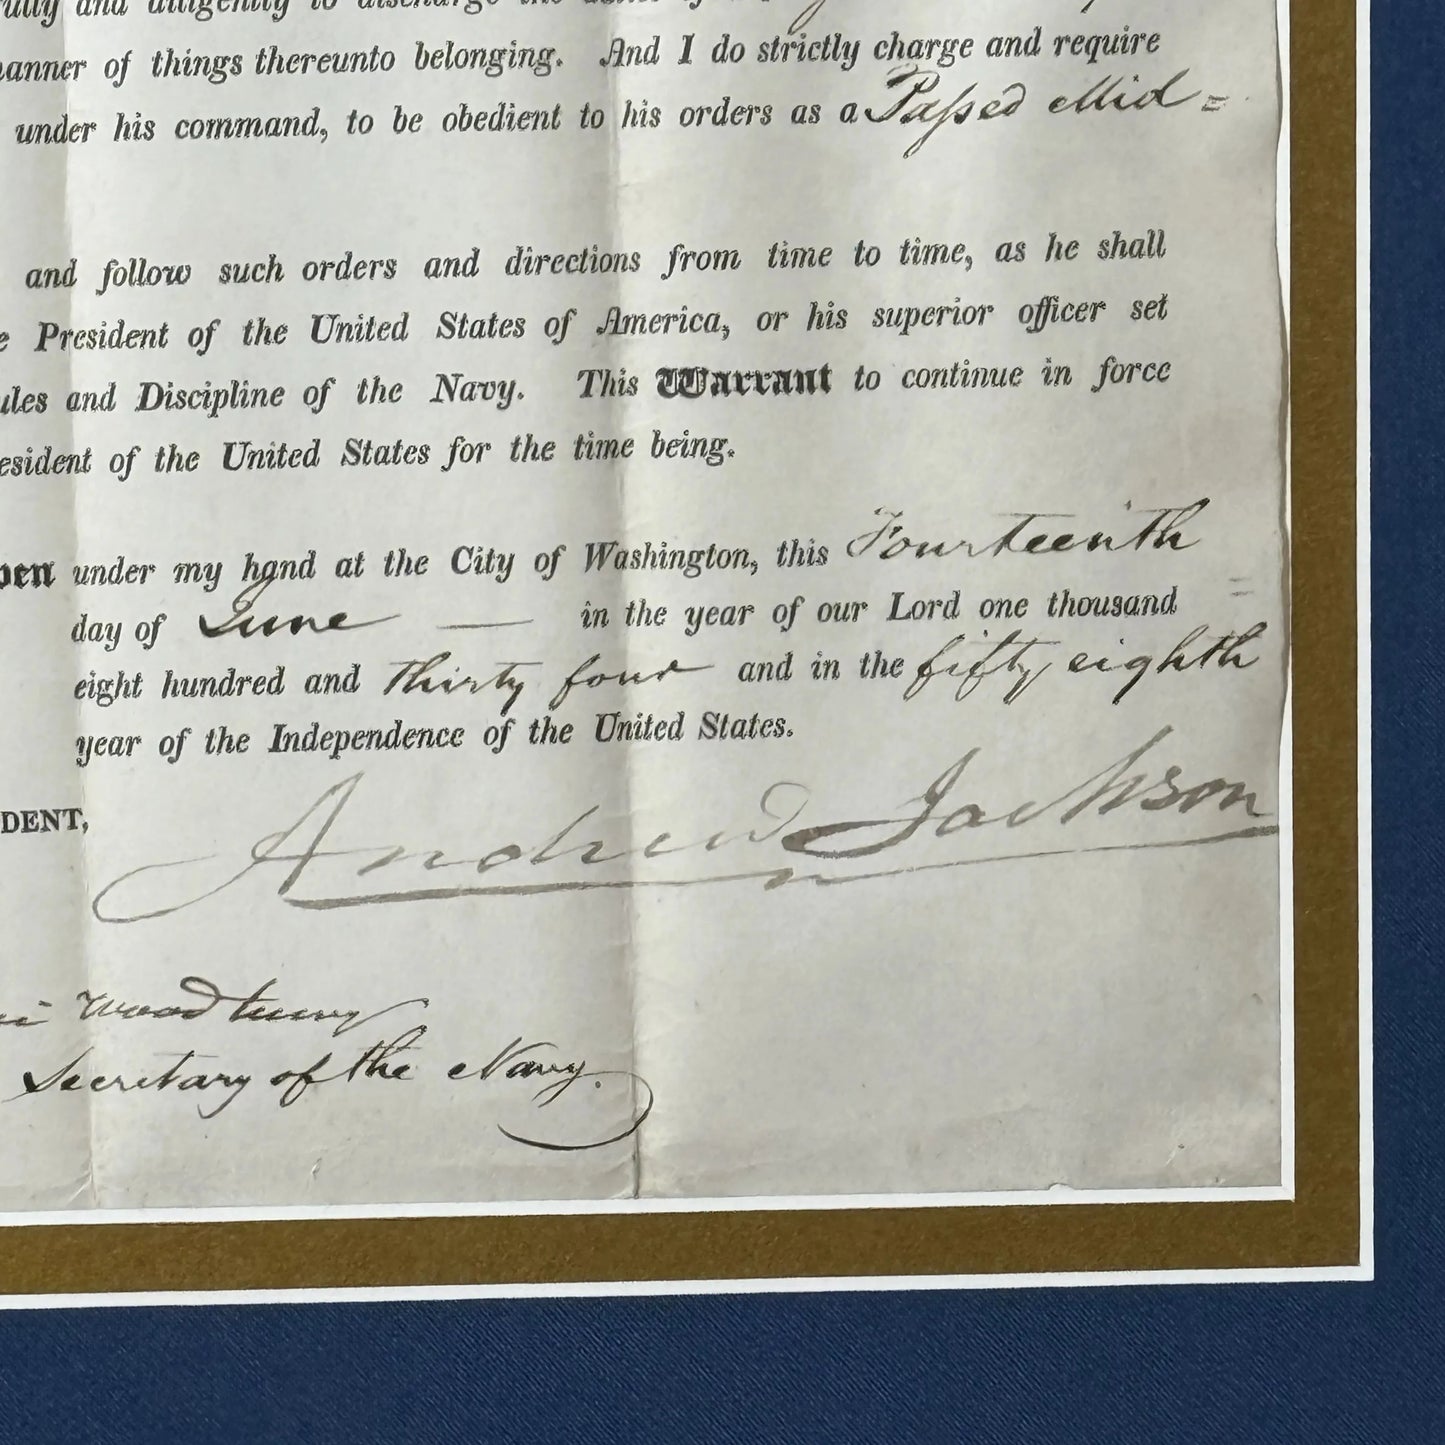 and diligently to discharge the
manner of things thereunto belonging. And I do strictly charge and require
under his command, to be obedient to his orders as a Passed Mid=
and follow such orders and directions from time to time, as he shall
e President of the United States of America, or his superior officer set
ules and Discipline of the Navy. This Warrant to continue in force
esident of the United States for the time being.
ben under my hand at the City of Washington, this Fourteenth
day of June — in the year of our Lord one thousand =
eight hundred and thirty four and in the fifty eighth
year of the Independence of the United States.
DENT,
Andrew Jackson
Woodbury
Secretary of the Navy.